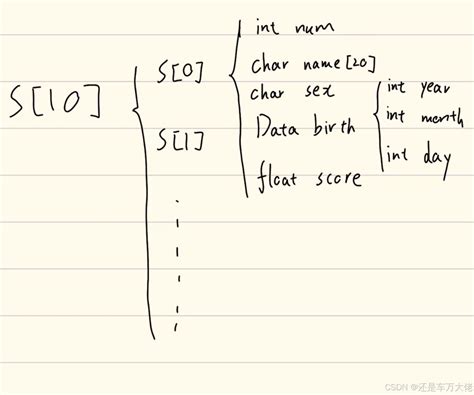 S[10]
S[0]
int num
char name[20]
char sex
Data birth
int year
int month
int day
float score
S[1]
CSDN @还是车万大佬